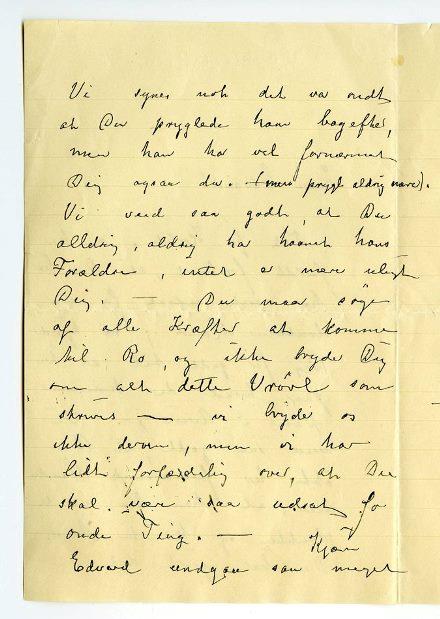 Vi synes nok det var ondt
at Du pryglede ham bagefter,
men han har vel fornærmet
Dig ogsaa da. (men prygl aldrig mere).
Vi veed saa godt, at Du
alldrig, aldrig har haanet hans
Forældre, intet er mere uligt
Dig. — Du maa søge
af alle Kræfter at komme
til Ro, og ikke bryde Dig
om alt dette Vrövl som
skrives — vi bryde os
ikke derom, men vi har
lidt forfærdelig over, at Du
skal være saa udsat for
onde Ting. — Kjære
Edvard undgaa saa meget